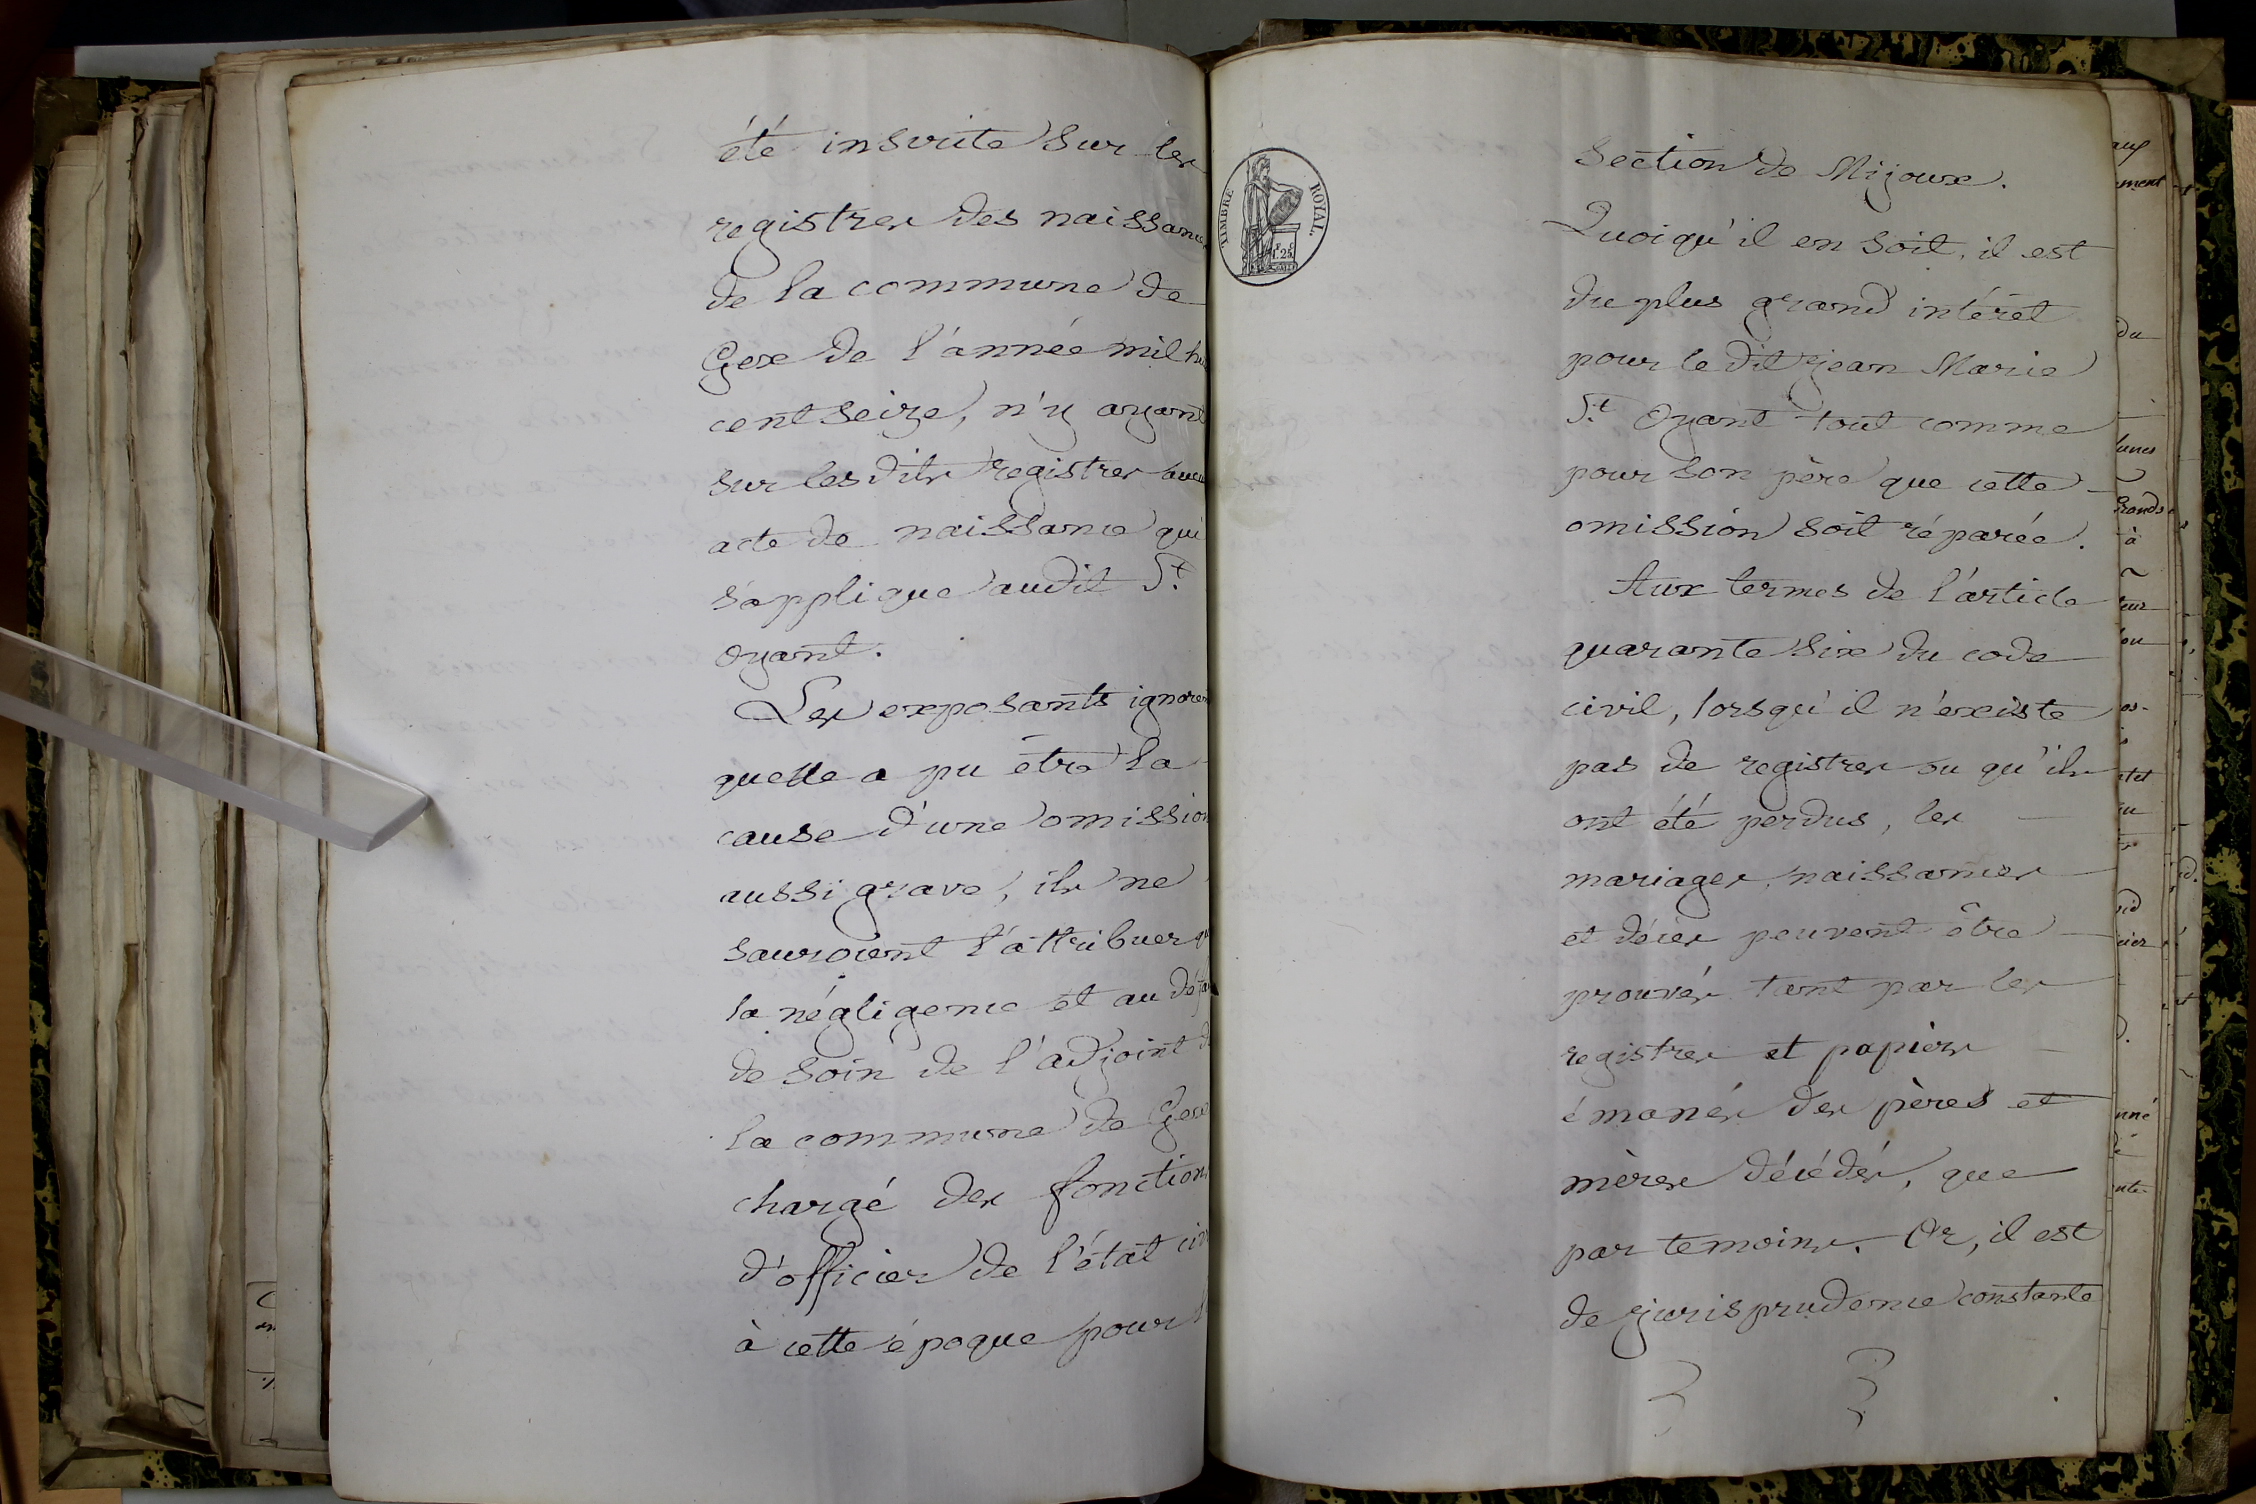 été inscrite sur les
registres des naissances
de la commune de
Gex de l'année mil huit
cent seize, n'y ayant
sur les dits registres aucun
acte de naissance qui
s'applique audit St.
Oyant.
Les exposants ignorent
quelle a pu être la
cause d'une omission
aussi grave, ils ne
sauroient l'attribuer qu'à
la négligence et au défaut
de soin de l'adjoint de
la commune de Gex
chargé des fonctions
d'officier de l'état civil
à cette époque pour la
TIMBRE ROYAL.
1f. 25c
section de Mijoux.
Quoiqu'il en soit, il est
du plus grand intérêt
pour le dit Jean Marie
St. Oyant tout comme
pour son père que cette
omission soit réparée.
Aux termes de l'article
quarante six du code
civil, lorsqu'il n'existe
pas de registres ou qu'ils
ont été perdus, les
mariages, naissances
et décès peuvent être
prouvés tant par les
registres et papiers
émanés des pères et
mères décédés, que
par temoins. Or, il est
de jurisprudence constante